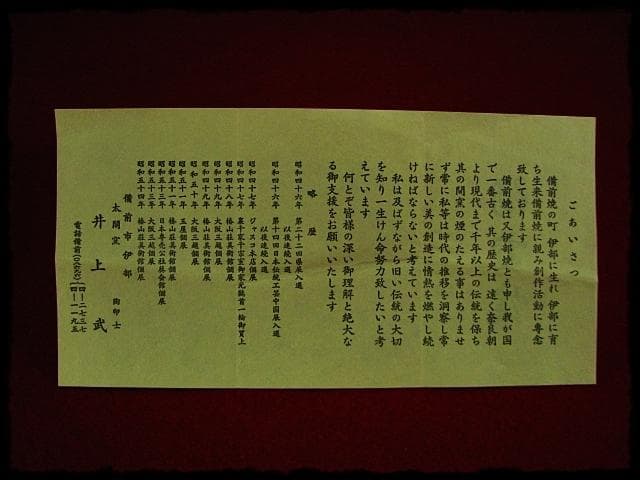 ごあいさつ
備前焼の町 伊部に生れ 伊部に育
ち生来備前焼に親み創作活動に専念
致しております
備前焼は又伊部焼とも申し我が国
で一番古く 其の歴史は 遠く奈良朝
より現代まで千年以上の伝統を保ち
其の間窯の煙のたえる事はありませ
ず常に私等は時代の推移を洞察し常
に新しい美の創造に情熱を燃やし続
けねばならないと考えています
私は及ばずながら旧い伝統の大切
を知り一生けん命努力致したいと考
えています
何とぞ皆様の深い御理解と絶大な
る御支援をお願いいたします
略歴
昭和四十六年 第二十二回県展入選
以後連続入選
昭和四十六年 第十四回日本伝統工芸中国展入選
以後連続入選
昭和四十七年 ジャスコ本店個展
昭和四十七年 裏千家千宗室御家元龝首一輪御買上
昭和四十八年 椿山荘美術館個展
昭和四十九年 大阪三越個展
昭和四十九年 椿山荘美術館個展
昭和五十年 大阪三越個展
昭和五十一年 玉屋個展
昭和五十一年 椿山荘美術館個展
昭和五十三年 日本専売公社共会館個展
昭和五十三年 大阪三越個展
昭和五十四年 椿山荘美術館個展
備前市伊部
太閤窯 陶印 士
井上 武
電話備前(〇八六九)四—二七三七
四—一一九五